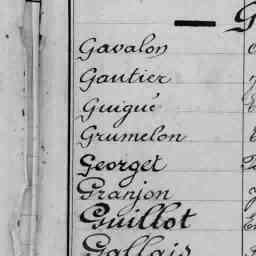 G
Gavalon
Gautier
Guigue
Grumelon
Georget
Granjon
Guillot
Gallais